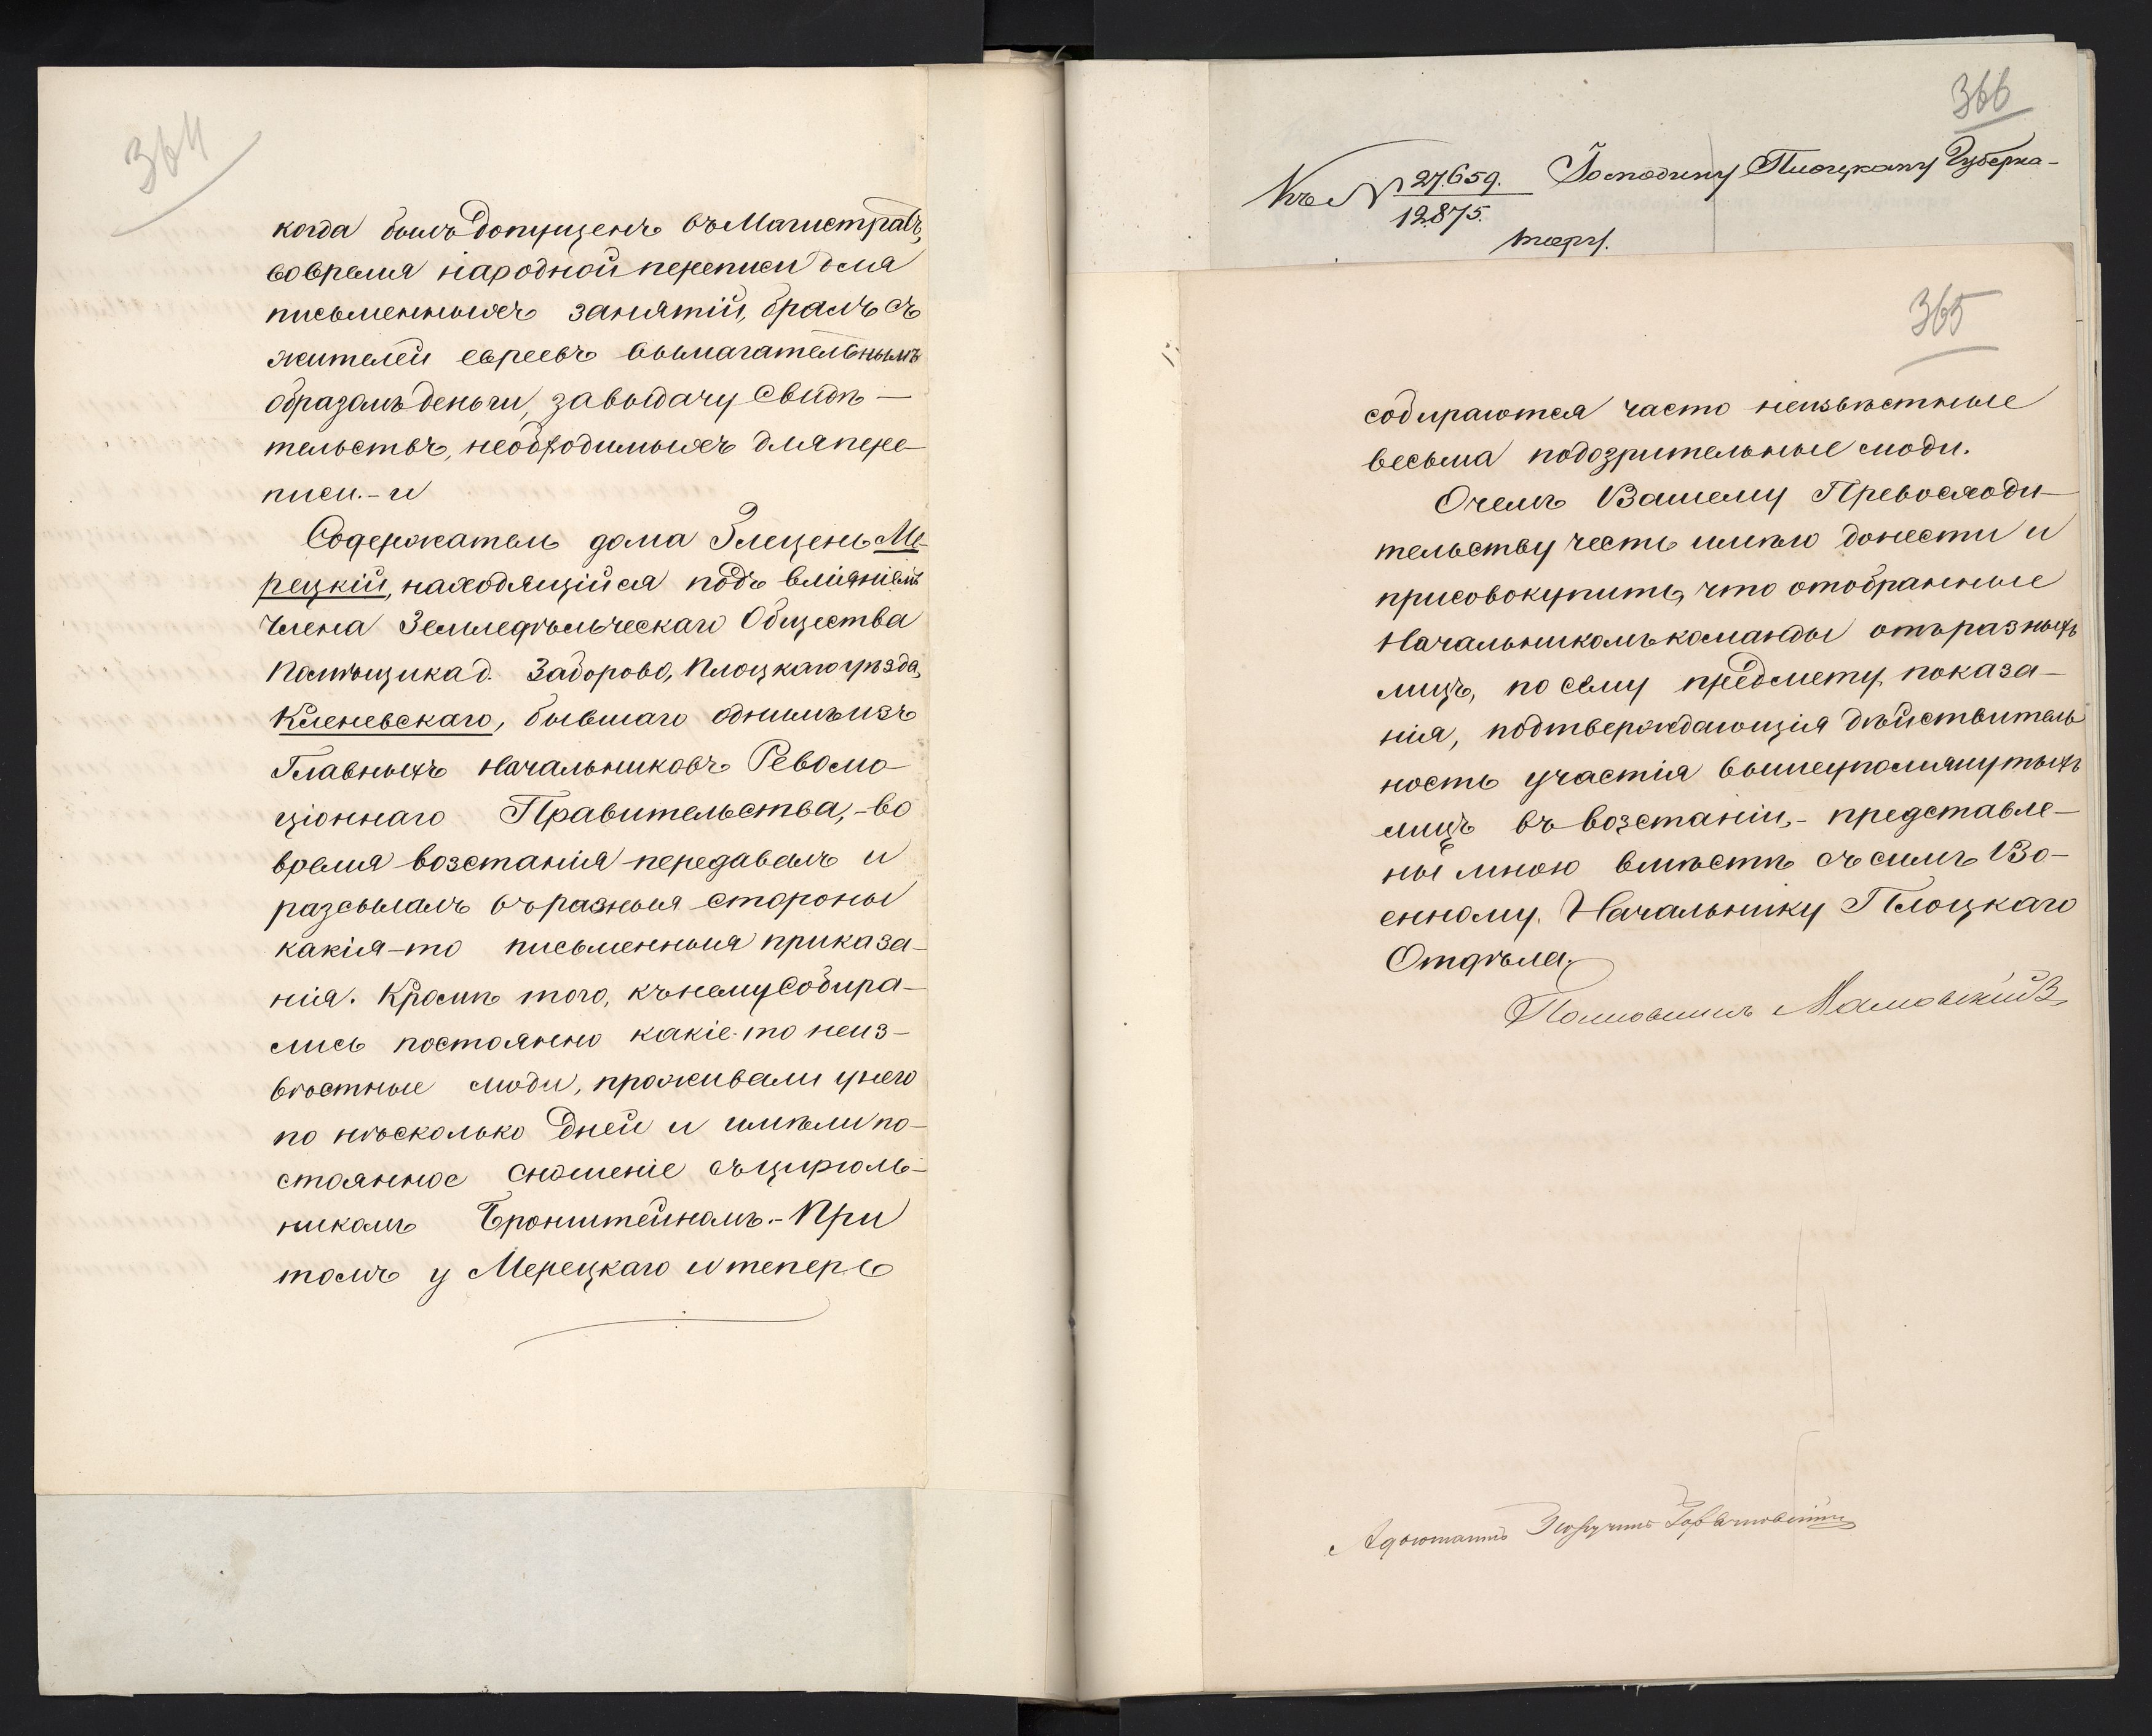 364
когда былъ допущенъ въ Магистратъ,
во время народной переписи для
письменныхъ занятій, бралъ съ
жителей евреевъ вымагательнымъ
образомъ деньги, за выдачу Свидѣ—
тельствъ, необходимыхъ для пере—
писи.- и
Содержатель дома Элецень Ме-
рецкій, находящійся подъ вліяніемъ
Члена Земледѣльческаго Общества
Помѣщика д. Задорово, Плоцкаго уѣзда,
Кленевскаго, бывшаго однимъ изъ
Главныхъ Начальниковъ Револю-
ціоннаго Правительства,-во
время возстанія передавалъ и
разсылалъ въ разныя стороны
какія-то письменныя приказа-
нія. Кромѣ того, къ нему собира-
лись постоянно какіе-то неиз-
вѣстные люди, проживали у него
по нѣсколько дней и имѣли по-
стоянное сношеніе съ цирюль-
никомъ Бронштейномъ.- При
томъ у Мерецкаго и теперь
366
Къ № 27.659. Господину Плоцкому Губерна-
12.875.
тору.
365
собираются часто неизвѣстные
весьма подозрительные люди.
О чемъ Вашему Превосходи—
тельству честь имѣю донести и
присовокупить, что отобранные
Начальникомъ команды отъ разныхъ
лицъ, по сему предмету показа—
нія, подтверждающія дѣйствитель
ность участія вышеупомянутыхъ
лицъ въ возстаніи,- представле—
ны мною вмѣстѣ съ симъ Во—
енному Начальнику Плоцкаго
Отдѣла.
Полковникъ
Адъютантъ Поручикъ